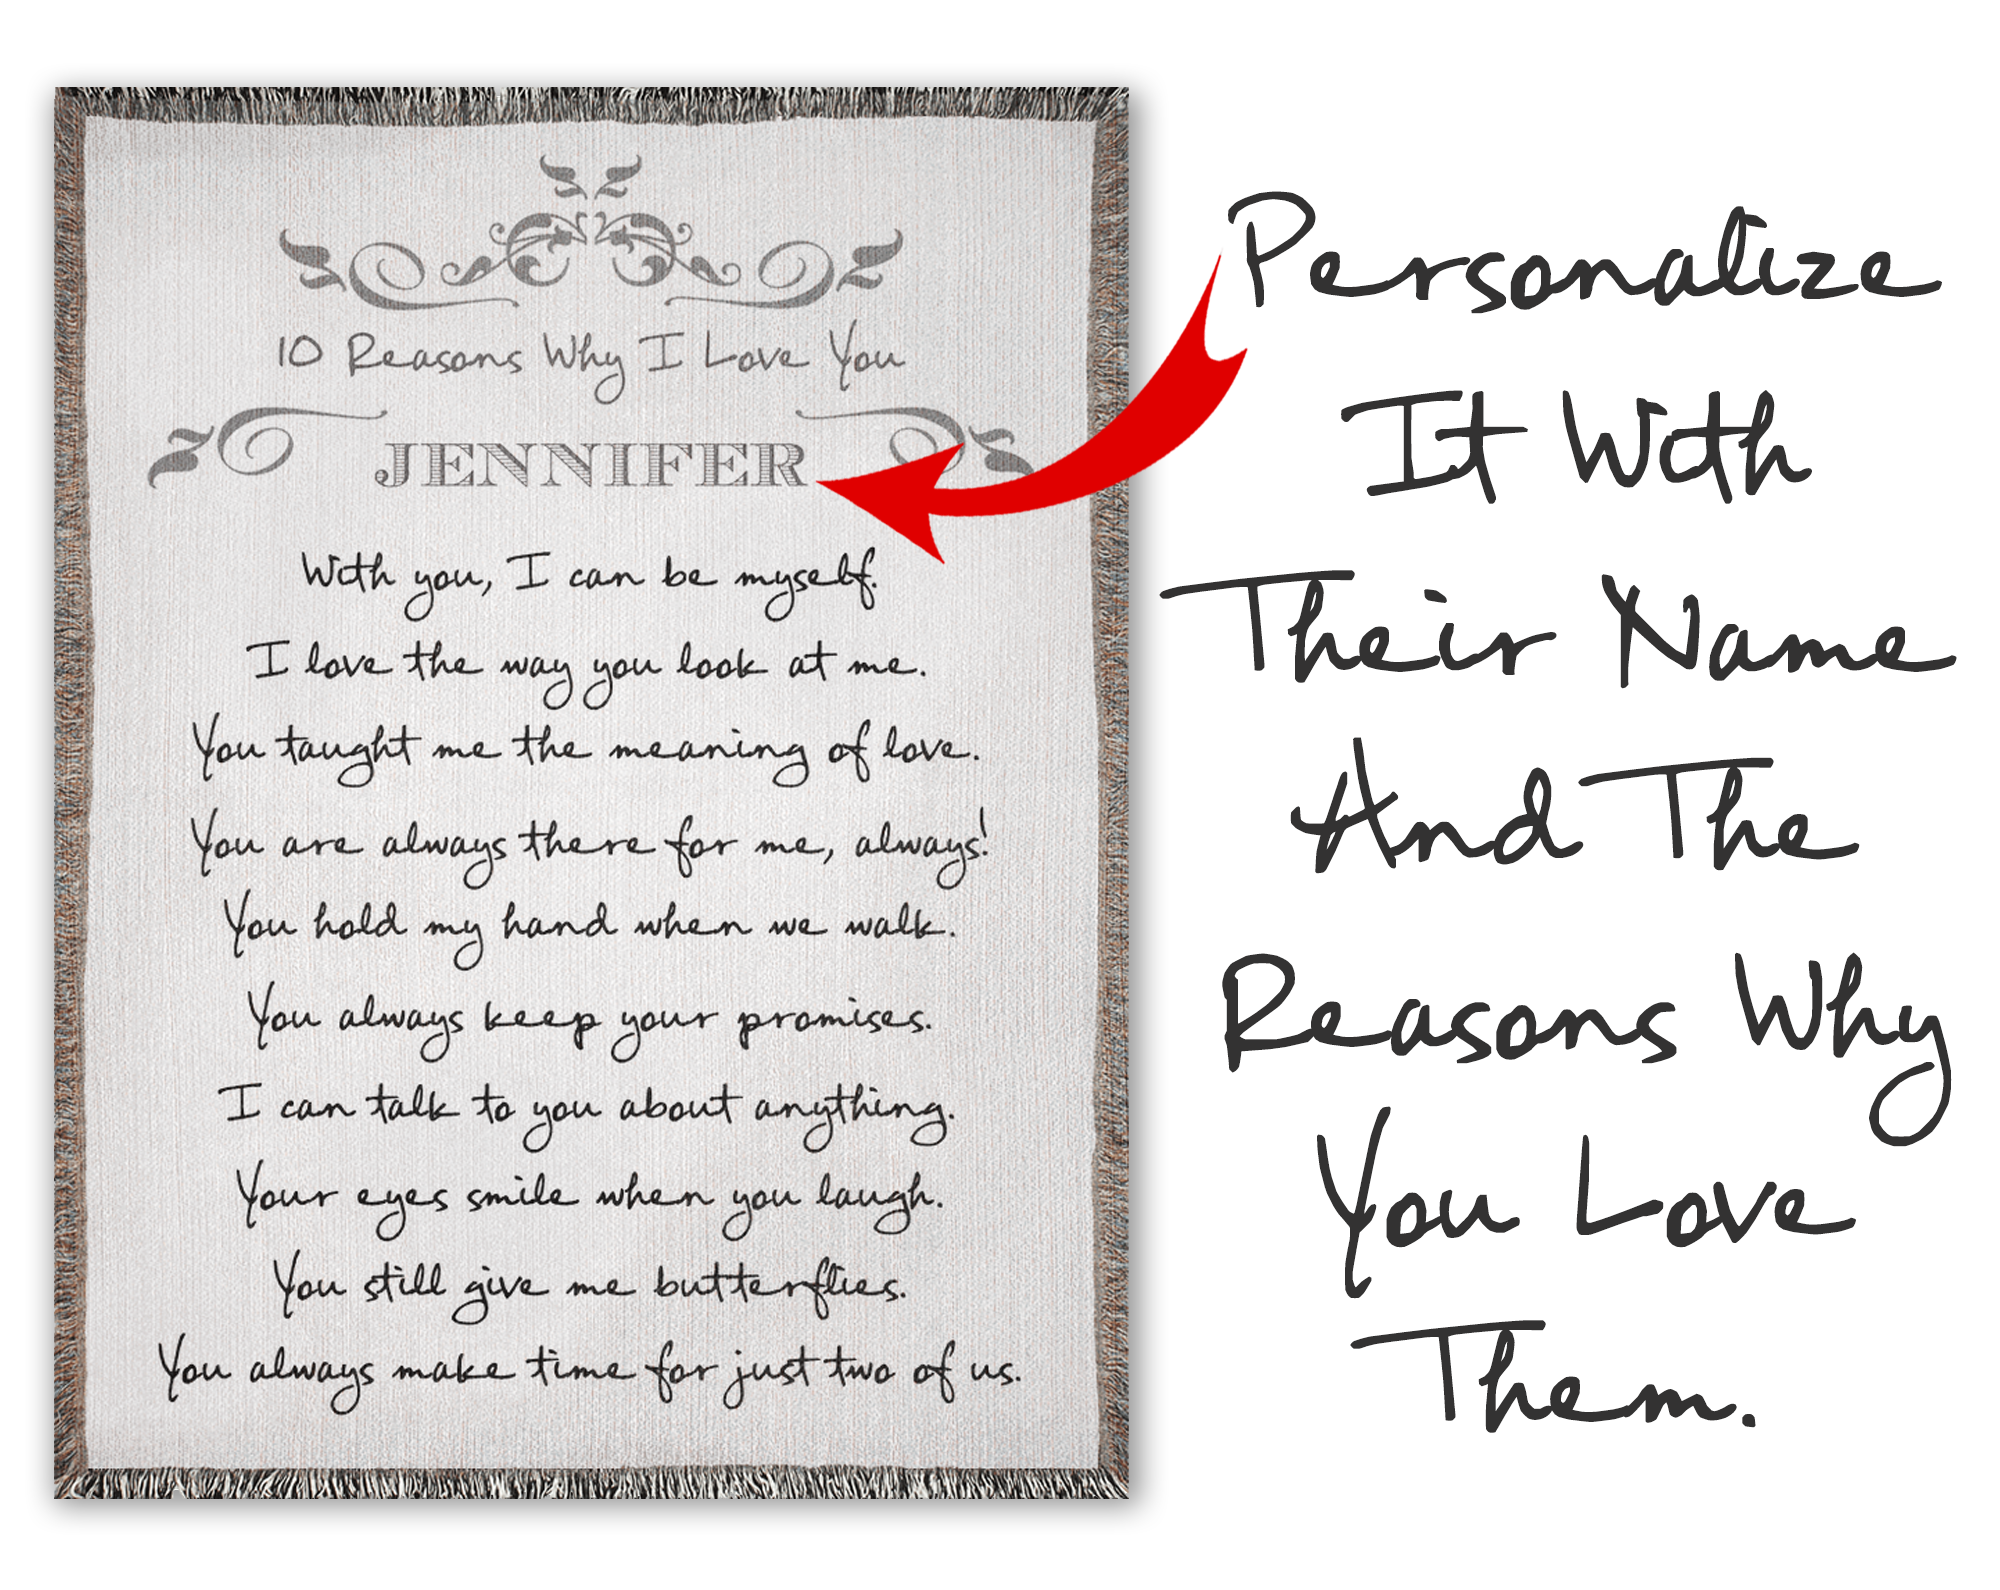 10 Reasons Why I Love You
JENNIFER
With you, I can be myself.
I love the way you look at me.
You taught me the meaning of love.
You are always there for me, always!
You hold my hand when we walk.
You always keep your promises.
I can talk to you about anything.
Your eyes smile when you laugh.
You still give me butterflies.
You always make time for just two of us.
Personalize
It With
Their Name
And The
Reasons Why
You Love
Them.